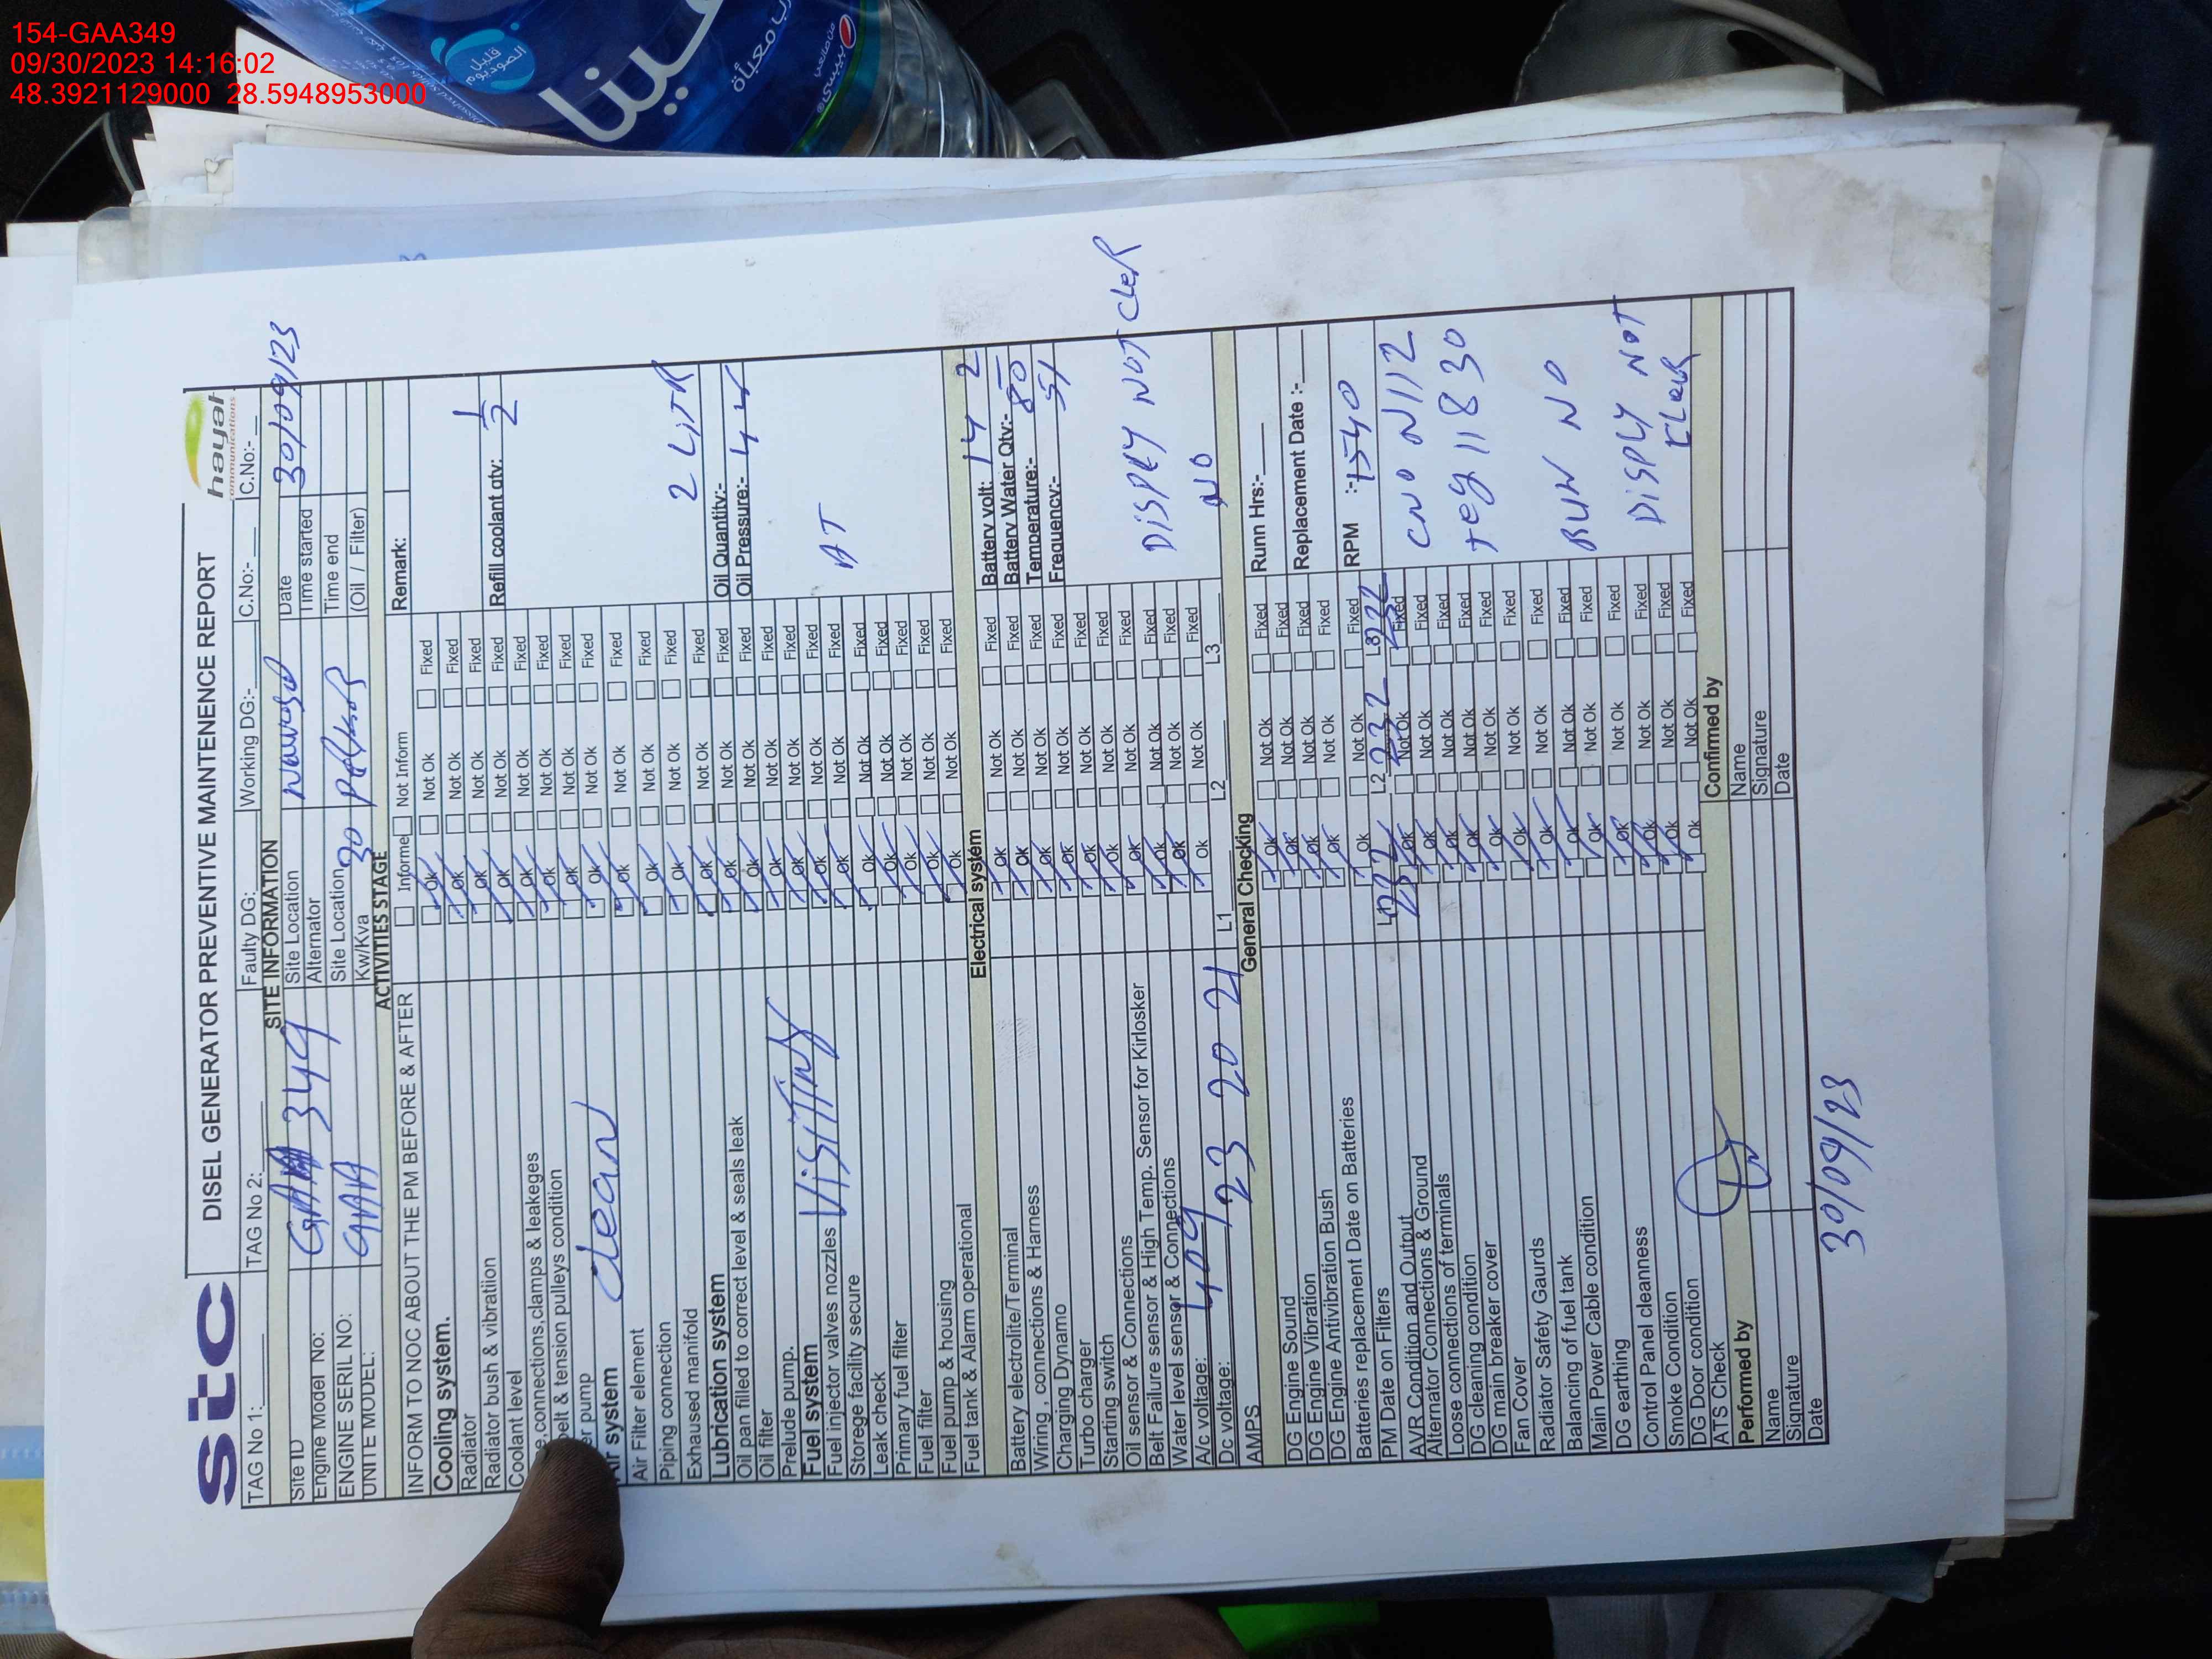 154-GAA349
09/30/2023 14:16:02
48.3921129000 28.5948953000
فينا
قليل
الصوديوم
stc
DISEL GENERATOR PREVENTIVE MAINTENENCE REPORT
hayat
communications
TAG No 1:
TAG No 2:
Faulty DG:
Working DG:-
C.No:-
C.No:-
SITE INFORMATION
Site ID
349
Site Location
Date
30/09/23
Engine Model No:
Alternator
Time started
ENGINE SERIL NO:
Site Location
Time end
UNITE MODEL:
Kw/Kva
30
(Oil / Filter)
ACTIVITIES STAGE
INFORM TO NOC ABOUT THE PM BEFORE & AFTER
Informe
Not Inform
Remark:
Cooling system.
Ok Not Ok Fixed
Radiator
Ok Not Ok Fixed
Radiator bush & vibratiion
Ok Not Ok Fixed
Coolant level
Ok Not Ok Fixed
Refill coolant qty:
1/2
connections,clamps & leakeges
Ok Not Ok Fixed
belt & tension pulleys condition
Ok Not Ok Fixed
er pump
Ok Not Ok Fixed
Air system
clean
Ok Not Ok Fixed
Air Filter element
Ok Not Ok Fixed
Piping connection
Ok Not Ok Fixed
Exhaused manifold
Ok Not Ok Fixed
2 LITR
Lubrication system
Ok Not Ok Fixed
Oil Quantity:-
Oil pan filled to correct level & seals leak
Ok Not Ok Fixed
Oil Pressure:-
Oil filter
Ok Not Ok Fixed
Prelude pump.
Ok Not Ok Fixed
Fuel system
Ok Not Ok Fixed
Fuel injector valves nozzles
VisiTing
Ok Not Ok Fixed
AT
Storege facility secure
Ok Not Ok Fixed
Leak check
Ok Not Ok Fixed
Primary fuel filter
Ok Not Ok Fixed
Fuel filter
Ok Not Ok Fixed
Fuel pump & housing
Ok Not Ok Fixed
Fuel tank & Alarm operational
Electrical system
Battery volt:
14 2
Battery electrolite/Terminal
Ok Not Ok Fixed
Battery Water Qty:-
Wiring , connections & Harness
Ok Not Ok Fixed
Temperature:-
80
Charging Dynamo
Ok Not Ok Fixed
Frequency:-
51
Turbo charger
Ok Not Ok Fixed
Starting switch
Ok Not Ok Fixed
Oil sensor & Connections
Ok Not Ok Fixed
Belt Failure sensor & High Temp. Sensor for Kirlosker
Ok Not Ok Fixed
DISPLY NOT CleR
Water level sensor & Connections
Ok Not Ok Fixed
A/c voltage:
409
Ok Not Ok Fixed
Dc voltage:
L1
L2
L3
NO
23 20 21
AMPS
General Checking
DG Engine Sound
Ok Not Ok Fixed
Runn Hrs:-
DG Engine Vibration
Ok Not Ok Fixed
DG Engine Antivibration Bush
Ok Not Ok Fixed
Replacement Date :-
Batteries replacement Date on Batteries
Ok Not Ok Fixed
PM Date on Filters
Ok Not Ok Fixed
RPM :-
1540
AVR Condition and Output
L1
232
L2
232
L3
232
Alternator Connections & Ground
Ok Not Ok Fixed
Loose connections of terminals
Ok Not Ok Fixed
CNO N1112
DG cleaning condition
Ok Not Ok Fixed
DG main breaker cover
Ok Not Ok Fixed
teg 11830
Fan Cover
Ok Not Ok Fixed
Radiator Safety Gaurds
Ok Not Ok Fixed
Balancing of fuel tank
Ok Not Ok Fixed
Main Power Cable condition
Ok Not Ok Fixed
RUN NO
DG earthing
Ok Not Ok Fixed
Control Panel cleanness
Ok Not Ok Fixed
Smoke Condition
Ok Not Ok Fixed
DISPLY NOT
DG Door condition
Ok Not Ok Fixed
ATS Check
Ok Not Ok Fixed
Performed by
Confirmed by
Name
Name
Signature
Signature
Date
Date
30/09/23